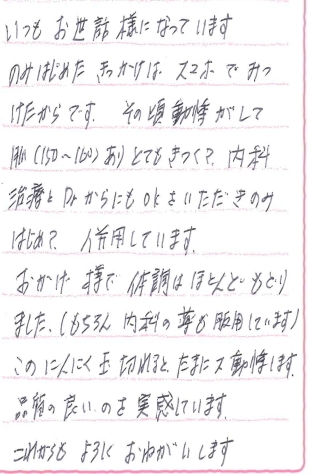 いつも お世話 様に なって います
のみはじめた きっかけは スマホ で みつ
けたからです。 その頃 動悸 がして
脈(150～160)あり)とてもきつくて、内科
治療と Drからにも OKをいただきのみ
はじめて 併用しています。
おかげ様で 体調は ほとんど もどり
ました。(もちろん 内科の薬も服用しています)
この にんにく玉 切れると、たまに 動悸します。
品質の良いのを 実感しています。
これからも よろしく おねがいします